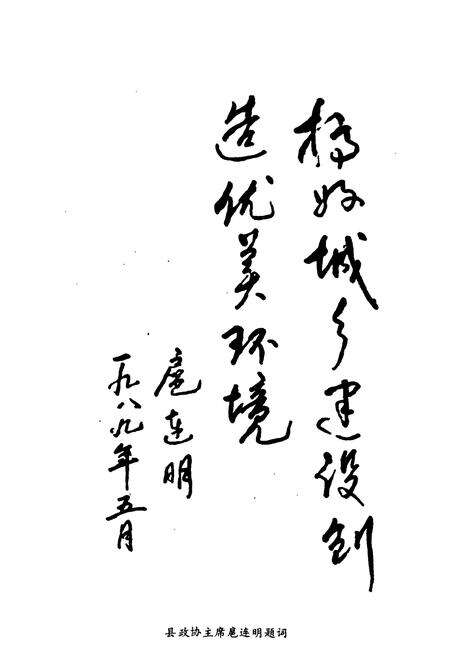 搞好城乡建设创
造优美环境
扈连明
一九八九年五月
县政协主席扈连明题词